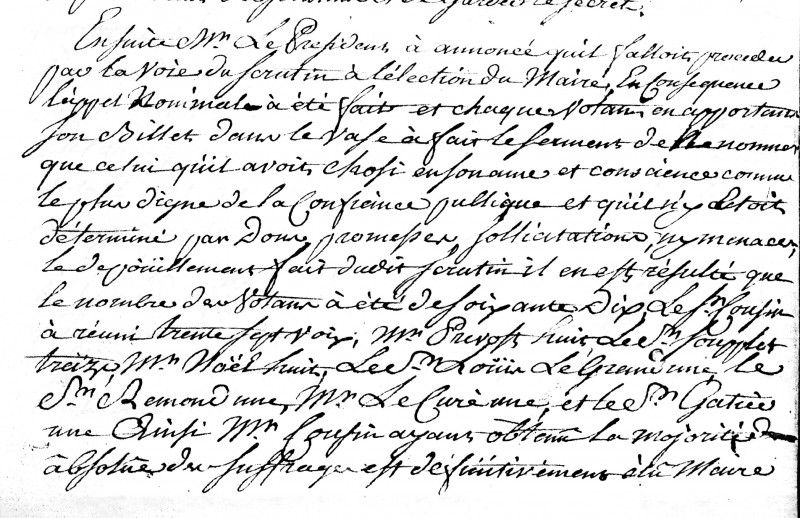 de garder le secret.
Ensuite Mr. Le President à annoncé quil falloit proceder
par la voie du scrutin à l'élection du Maire, En Consequence
l'appel Nominale à été fait et chaque Votant en apportant
son Billet dans le Vase à fait le serment de Ne nommer
que celui qu'il avoit choisi en son ame et conscience comme
le plus digne de la Confiance publique et qu'il n'y Etoit
déterminé par Dons, promesses, sollicitations, ny menaces,
le depoüillement fait dudit scrutin il en est résulté que
le nombre des Votans à été de soixante Dix Le Sr. Cousin
à réuni trente sept voix, Mr. Prevost huit, Le Sr. Souplet
treize Mr. Noël huit, Le Sr. Loüis Le Grand une, le
Sr. Remond une, Mr. Le Curé une, et le Sr. Gatiée
une Ainsi Mr. Cousin ayant obtenu la majorité
absolüe des suffrages est definitivement élu Maire